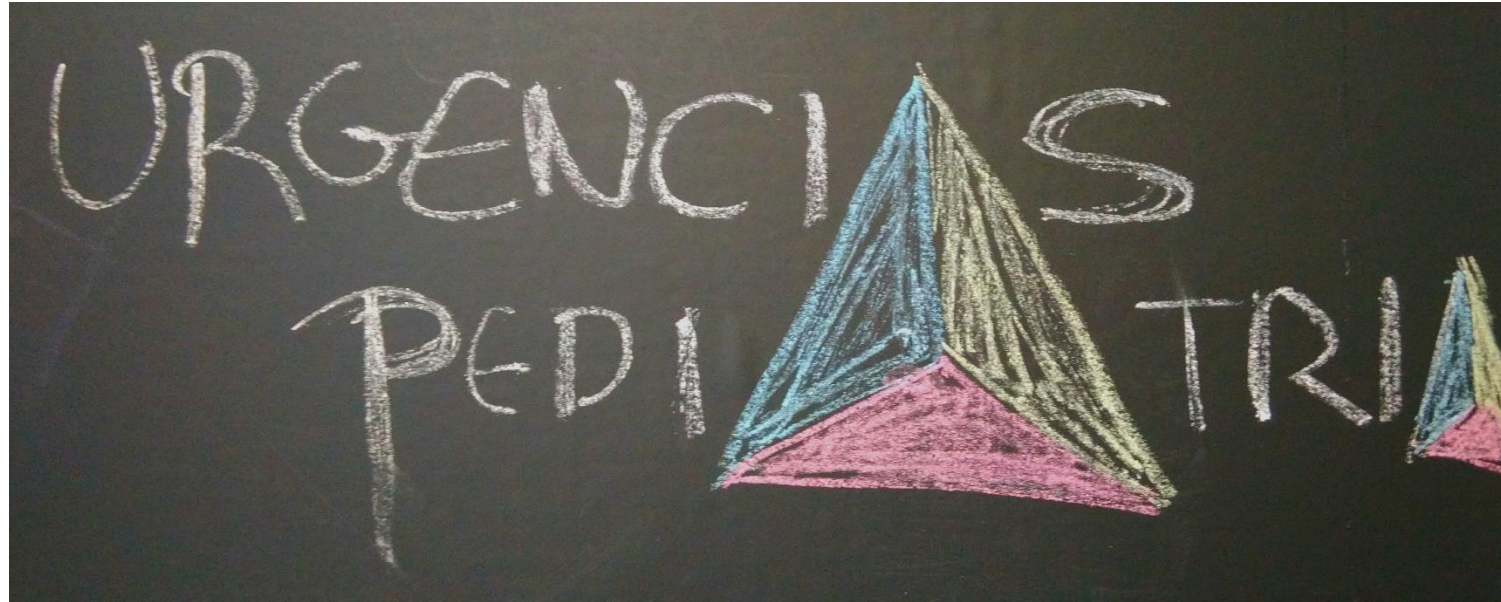 URGENCIAS
PEDIATRIA